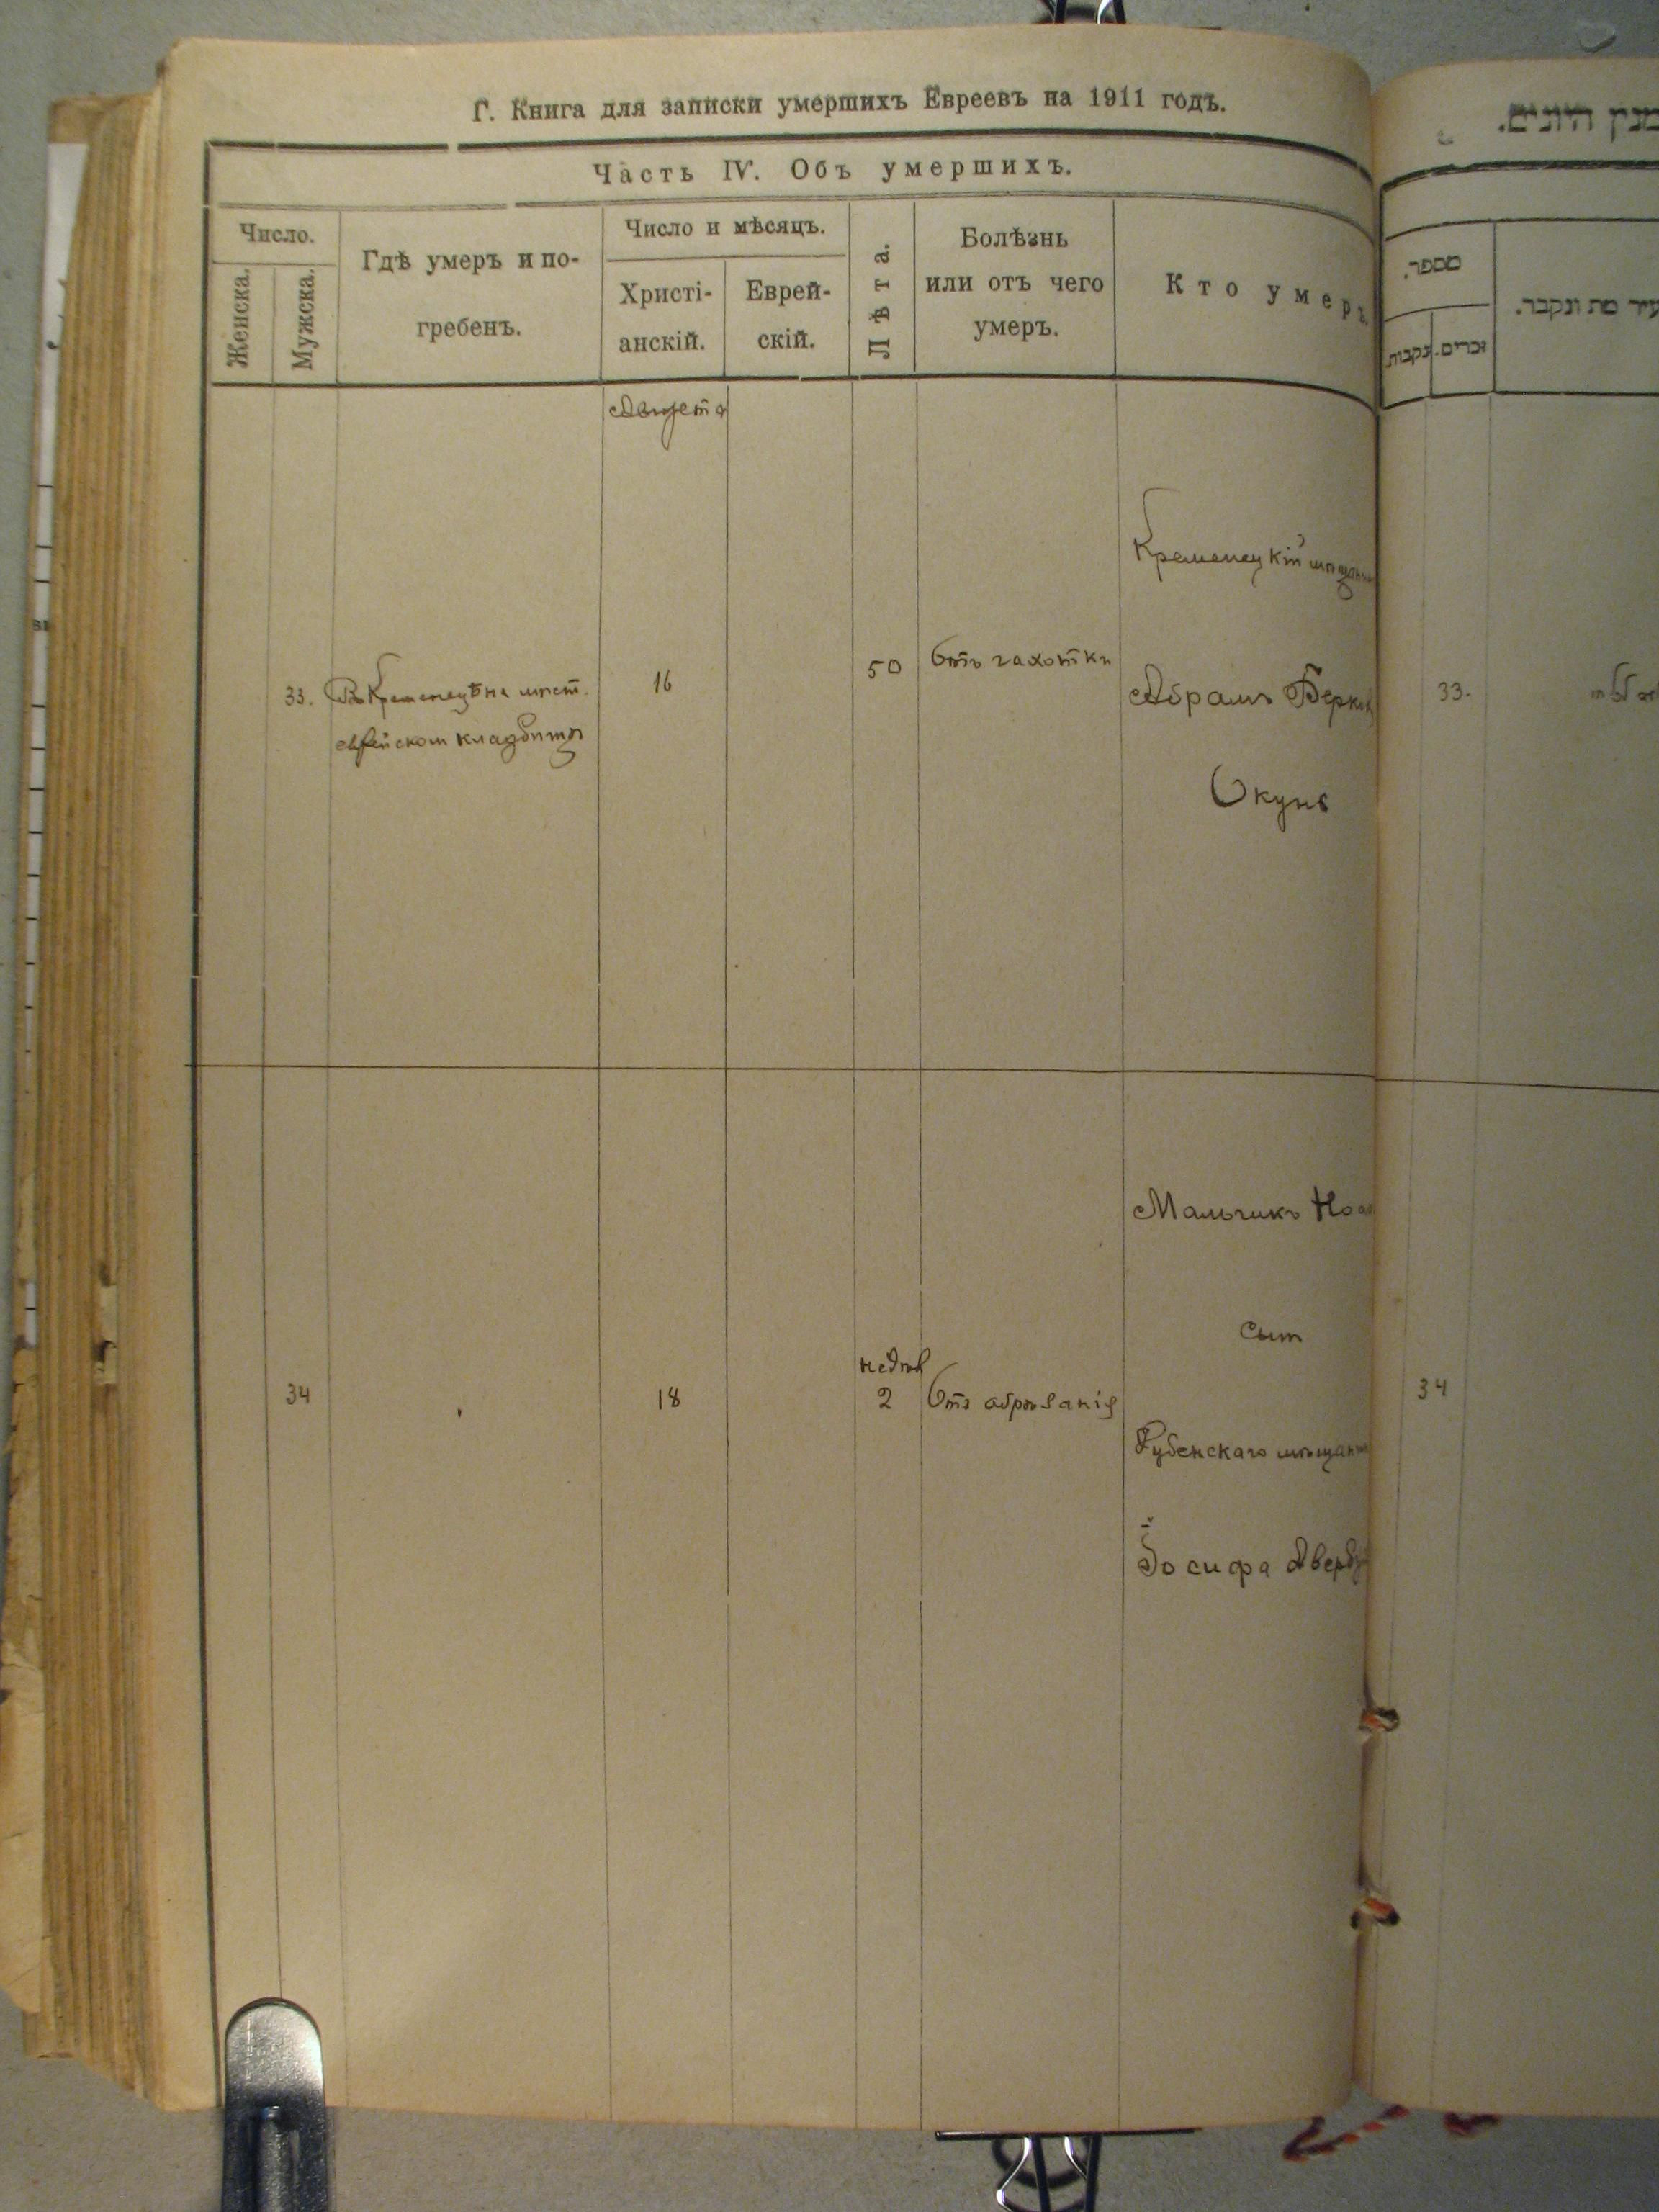 Г. Книга для записки умершихъ Евреевъ на 1911 годъ.
Часть IV. Объ умершихъ.
Число.
Женска.
Мужска.
Гдѣ умеръ и по-
гребенъ.
Число и мѣсяцъ.
Христі-
анскій.
Еврей-
скій.
Лѣта.
Болѣзнь
или отъ чего
умеръ.
Кто умеръ.
Августа
33.
Въ Кременецѣ на мѣст.
еврейском кладбищѣ
16
50
Отъ чахотки
Кременецкій мѣщанин
Абрамъ Берков
Окунь
34
18
недѣль
2
Отъ обрѣзанія
Мальчикъ
сын
Дубенскаго мѣщанин
Іосифа Авербу
מספר.
זכרים.
נקבות
עיר מת ונקבר.
33.
34